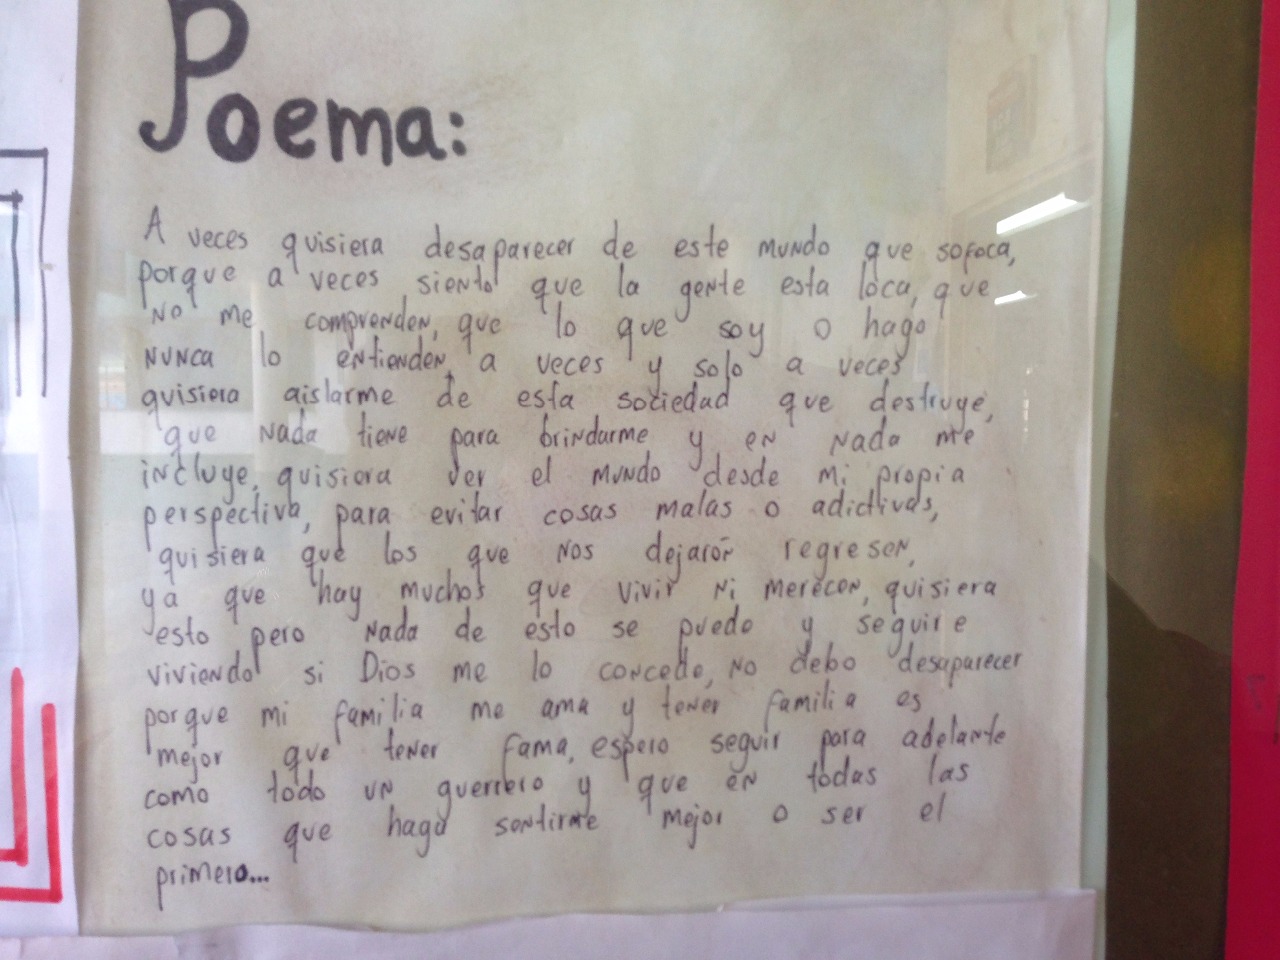 Poema:
A veces quisiera desaparecer de este mundo que sofoca,
porque a veces siento que la gente esta loca, que
no me comprenden, que lo que soy o hago
nunca lo entienden, a veces y solo a veces
quisiera aislarme de esta sociedad que destruye,
que nada tiene para brindarme y en nada me
incluye, quisiera ver el mundo desde mi propia
perspectiva, para evitar cosas malas o adictivas,
quisiera que los que nos dejaron regresen,
ya que hay muchos que vivir ni merecen, quisiera
esto pero nada de esto se puede y seguire
viviendo si Dios me lo concede, no debo desaparecer
porque mi familia me ama y tener familia es
mejor que tener fama, espero seguir para adelante
como todo un guerrero y que en todas las
cosas que haga sentirme mejor o ser el
primero...